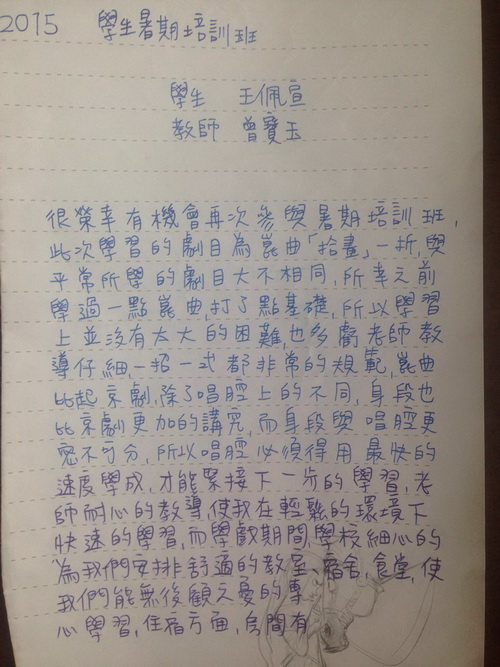 2015 學生暑期培訓班
學生 王佩宣
教師 曾寶玉
很榮幸有機會再次參與暑期培訓班,
此次學習的劇目為崑曲「拾畫」一折,與
平常所學的劇目大不相同,所幸之前
學過一點崑曲,打了點基礎,所以學習
上並沒有太大的困難,也多虧老師教
導仔細,一招一式都非常的規範,崑曲
比起京劇,除了唱腔上的不同,身段也
比京劇更加的講究,而身段與唱腔更
密不可分,所以唱腔必須得用最快的
速度學成,才能緊接下一步的學習,老
師耐心的教導,使我在輕鬆的環境下
快速的學習,而學戲期間,學校細心的
為我們安排舒適的教室、宿舍、食堂,使
我們能無後顧之憂的專
心學習,住宿方面,房間有